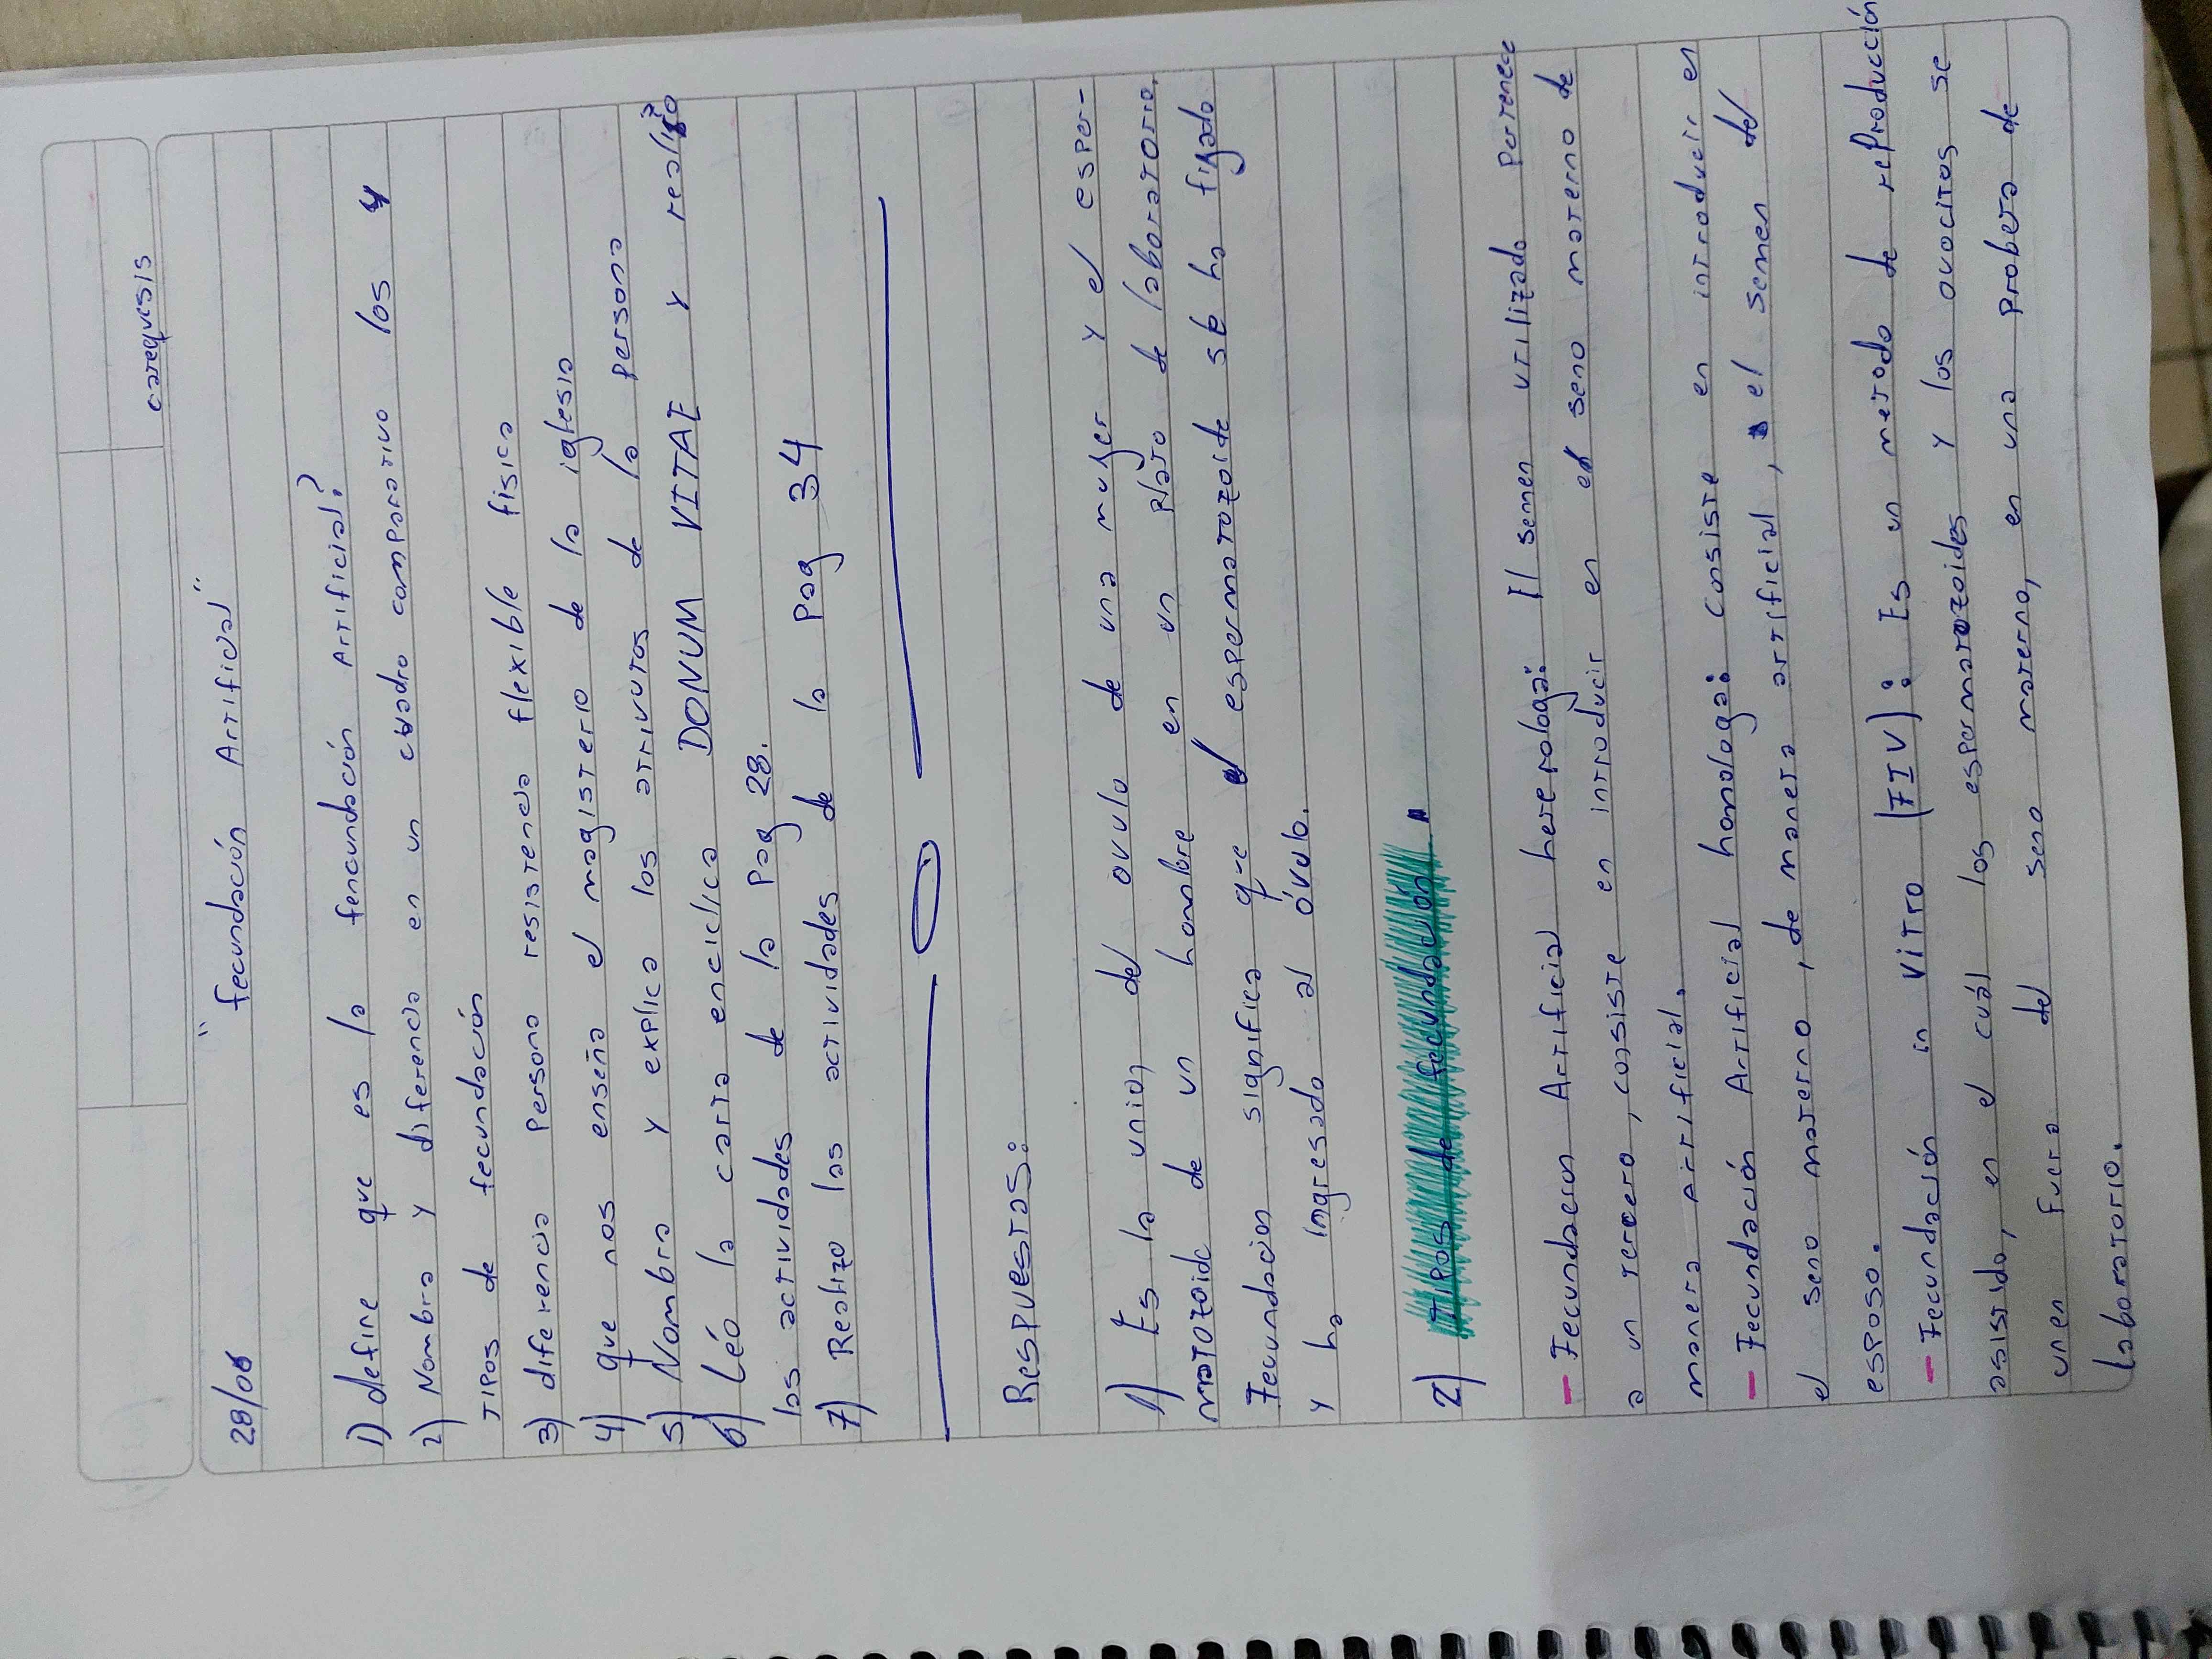 catequesis
28/06 "fecundación Artificial"
1) define que es la fencundación Artificial?
2) Nombra y diferencia en un cuadro comparativo los 4
tipos de fecundación
3) diferencia Persona resistencia flexible fisica
4) que nos enseña el magisterio de la iglesia
5) Nombra y explica los atrivutos de la persona
6) Leó la carta enciclica DONUM VITAE y realizo
las actividades de la Pag 28.
7) Realizo las actividades de la Pag 34
Respuestas:
1) Es la union del ovulo de una muger y el esper-
matozoide de un hombre en un plato de laboratorio.
Fecundacion significa que el espermatozoide se ha fijado
y ha ingresado al óvulo.
2) Tipos de fecundación.
- Fecundacion Artificial heterologa: El semen utilizado pertenece
a un tercero, consiste en introducir en el seno materno de
manera artificial.
- Fecundación Artificial homologa: consiste en introducir en
el seno materno, de manera artificial, el semen del
esposo.
- Fecundación in vitro (FIV): Es un metodo de reproducción
asistida, en el cuál los espermatozoides y los ovocitos se
unen fuera del seno materno, en una probeta de
laboratorio.